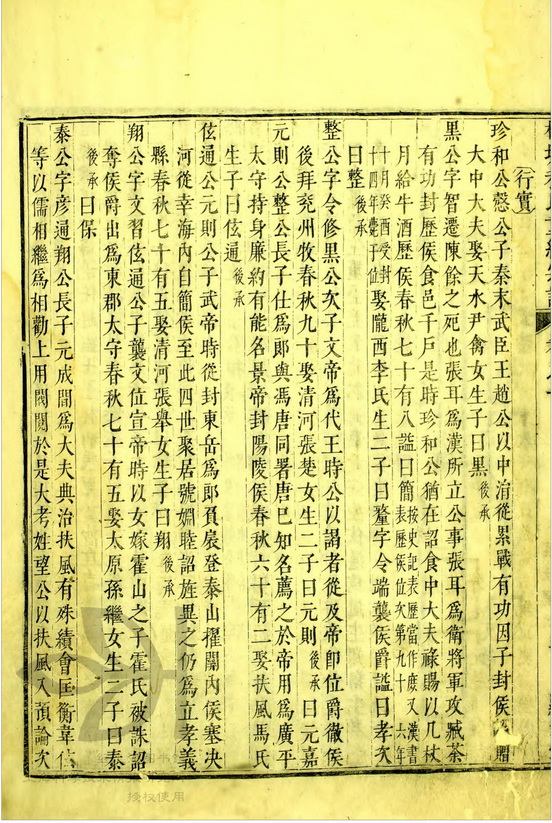 行實
珍和公慤公子秦末武臣王趙公以中涓從累戰有功因子封侯贈
大中大夫娶天水尹禽女生子曰黑後承
黑公字智遷陳餘之死也張耳爲漢所立公事張耳爲衛將軍攻臧荼
有功封歷侯食邑千戶是時珍和公猶在詔食中大夫祿賜以几杖
月給牛酒歷侯春秋七十有八謚曰簡按史記表歷當作磿又漢書表歷侯位次第九十六年
十月癸酉受封十四年薨于位娶隴西李氏生二子曰釐字令端襲侯爵謚曰孝次
曰整後承
整公字令修黑公次子文帝爲代王時公以謁者從及帝即位爵徹侯
後拜兖州牧春秋九十娶清河張楚女生二子曰元則後承曰元嘉
元則公整公長子仕爲郞與馮唐同署唐巳知名薦之於帝用爲廣平
太守持身廉約有能名景帝封陽陵侯春秋六十有二娶扶風馬氏
生子曰伭通後承
伭通公元則公子武帝時從封東岳爲郞負扆登泰山擢關內侯塞决
河從幸海內自簡侯至此四世聚居號婣睦詔旌異之仍爲立孝義
縣春秋七十有五娶清河張舉女生子曰翔後承
翔公字文習伭通公子襲文位宣帝時以女嫁霍山之子霍氏被誅詔
奪侯爵出爲東郡太守春秋七十有五娶太原孫繼女生二子曰秦
後承曰保
秦公字彦通翔公長子元成間爲大夫典治扶風有殊績會匡衡韋
等以儒相繼爲相勸上用閥閱於是大考姓望公以扶風入預論次
授权使用